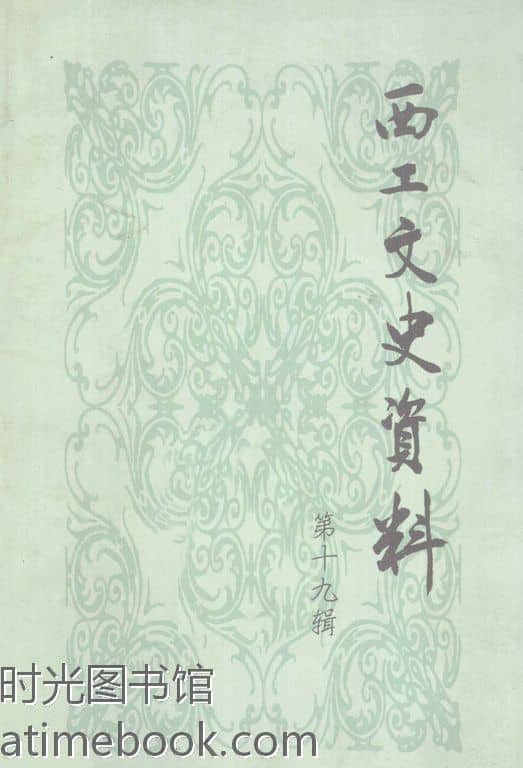 西工文史資料
第十九辑
时光图书馆
atimebook.com